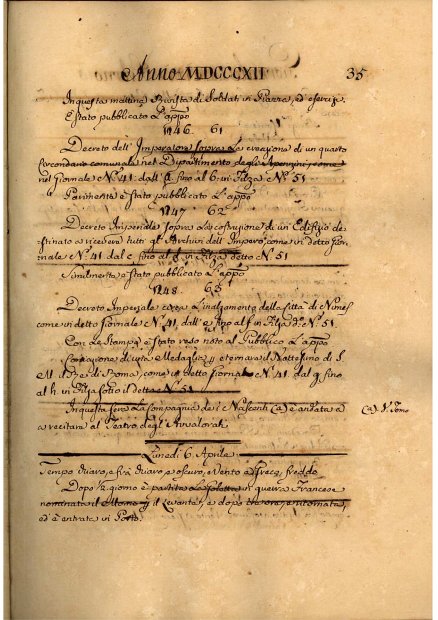 Anno MDCCCXII 35
In questa mattina Rivista di Soldati in Piazza, ed esercizj.
È stato pubblicato l'appò
1246 61
Decreto dell'Imperatore sopra la creazione di un quarto
Circondario comunale nel Dipartimento degli Apennini, come
nel Giornale Nº. 41. dall' a fino al b. in Filza Nº. 51
Parimente è stato pubblicato L'appò
1247 62
Decreto Imperiale sopra la costruzione di un Edifizio de-
stinato a ricevere tutti gli Archivi dell'Impero, come in detto Gior-
nale Nº. 41 dal c fino al d. in Filza detto Nº. 51
Similmente è stato pubblicato L'appò
1248 63
Decreto Imperiale circa L'inalzamento della Città di Nimes
come in detto Giornale Nº. 41, dall' e fino al f in Filza dº. Nº. 51.
Con la Stampa è stato reso noto al Pubblico L'appò
Coniazione di una Medaglia p eternare il Natte simo di S.
M. il Re di Roma, come in detto Giornale Nº. 41. dal g. fino
al h. in Filza sotto il detto Nº. 51
In questa sera La Compagnia dei Nascenti (a) è andata a (a) V. Tomo
a recitare al Teatro degli Avvalorati
Lunedì 6. Aprile
Tempo vario, e frà vario, e oscuro, e vento a Frecc, freddo
Dopo ½ giorno è partita La Goletta di guerra Francese
nominata il p il Levante, e dopo tre ore è ritornata,
ed è entrata in Porto.